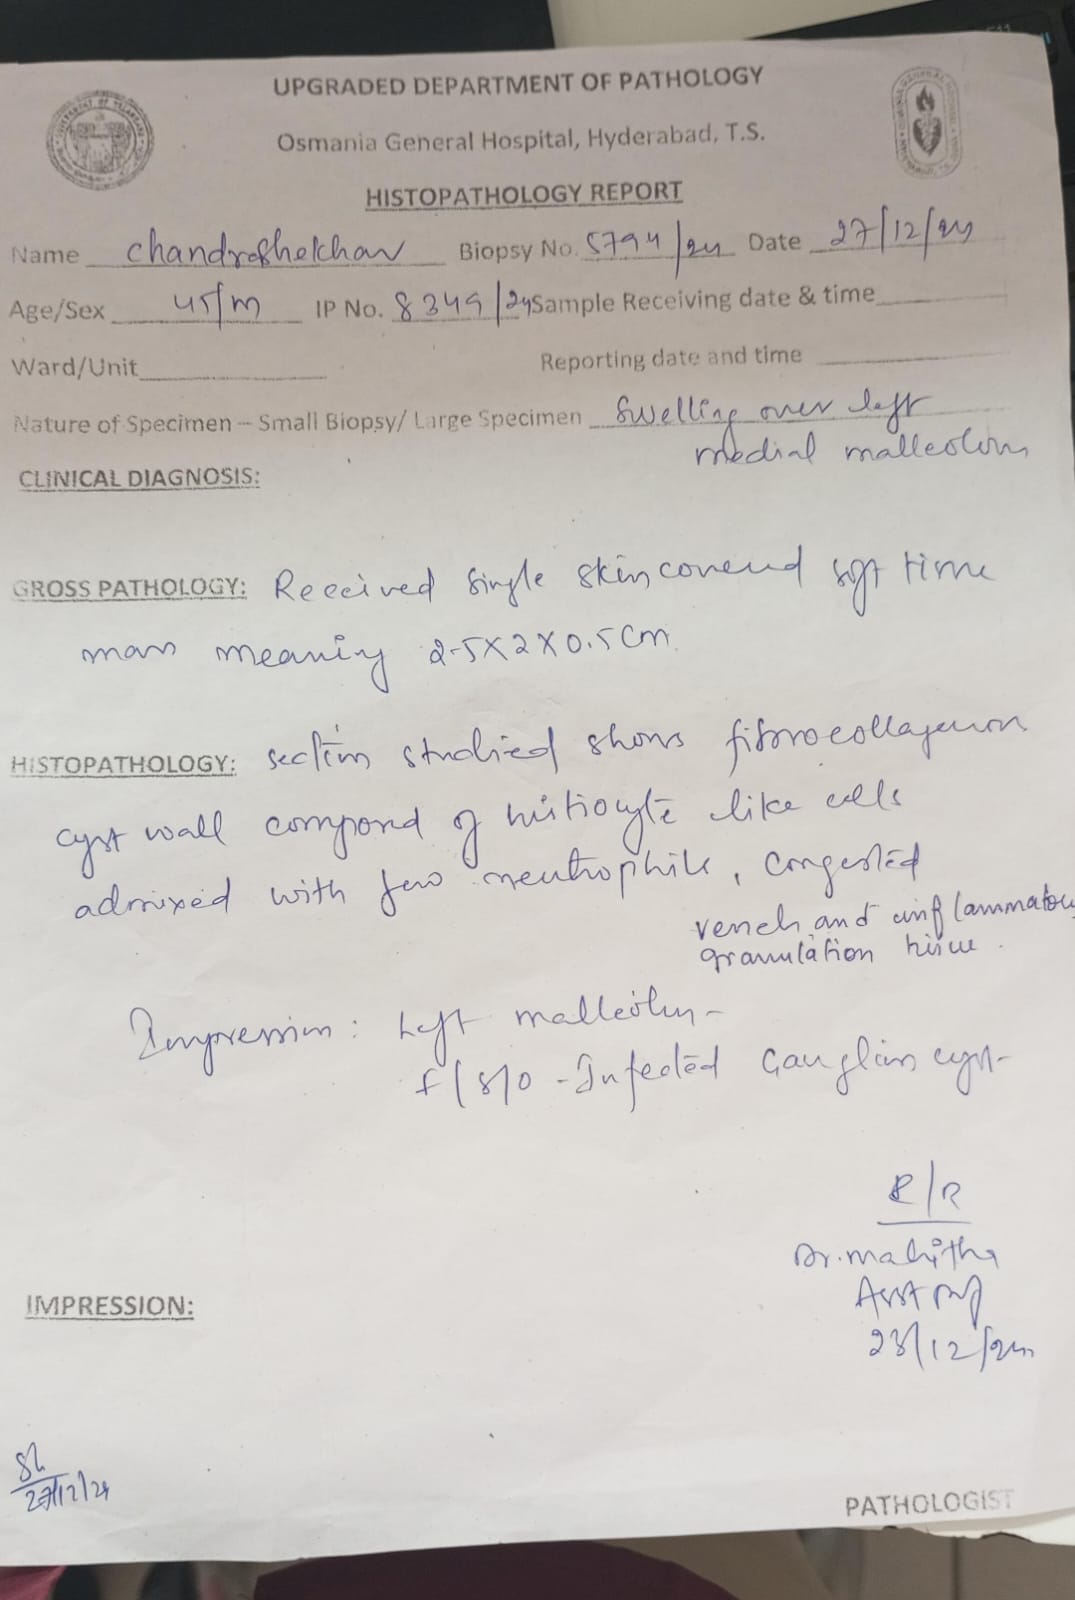 UPGRADED DEPARTMENT OF PATHOLOGY
Osmania General Hospital, Hyderabad, T.S.
HISTOPATHOLOGY REPORT
Name Chandrashekhar Biopsy No. 5794/24 Date 27/12/24
Age/Sex 45/m IP No. 8349/24 Sample Receiving date & time
Ward/Unit Reporting date and time
Nature of Specimen – Small Biopsy/ Large Specimen Swelling over left
medial malleolus
CLINICAL DIAGNOSIS:
GROSS PATHOLOGY: Received single skin covered soft tissue
mass measuring 2.5X2X0.5cm.
HISTOPATHOLOGY: section studied shows fibrocollagenous
cyst wall composed of histiocyte like cells
admixed with few neutrophils, congested
vessels and inflammatory
granulation tissue.
Impression: Left malleolus -
f/s/o - Infected Ganglion cyst-
R/R
Dr. mahitha
Asst prof
IMPRESSION:
/12/24
27/12/24
PATHOLOGIST